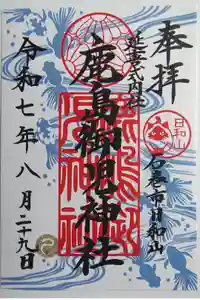 奉拝
石巻市日和山
日和山
延喜式内社
鹿島御児神社
令和七年八月二十九日